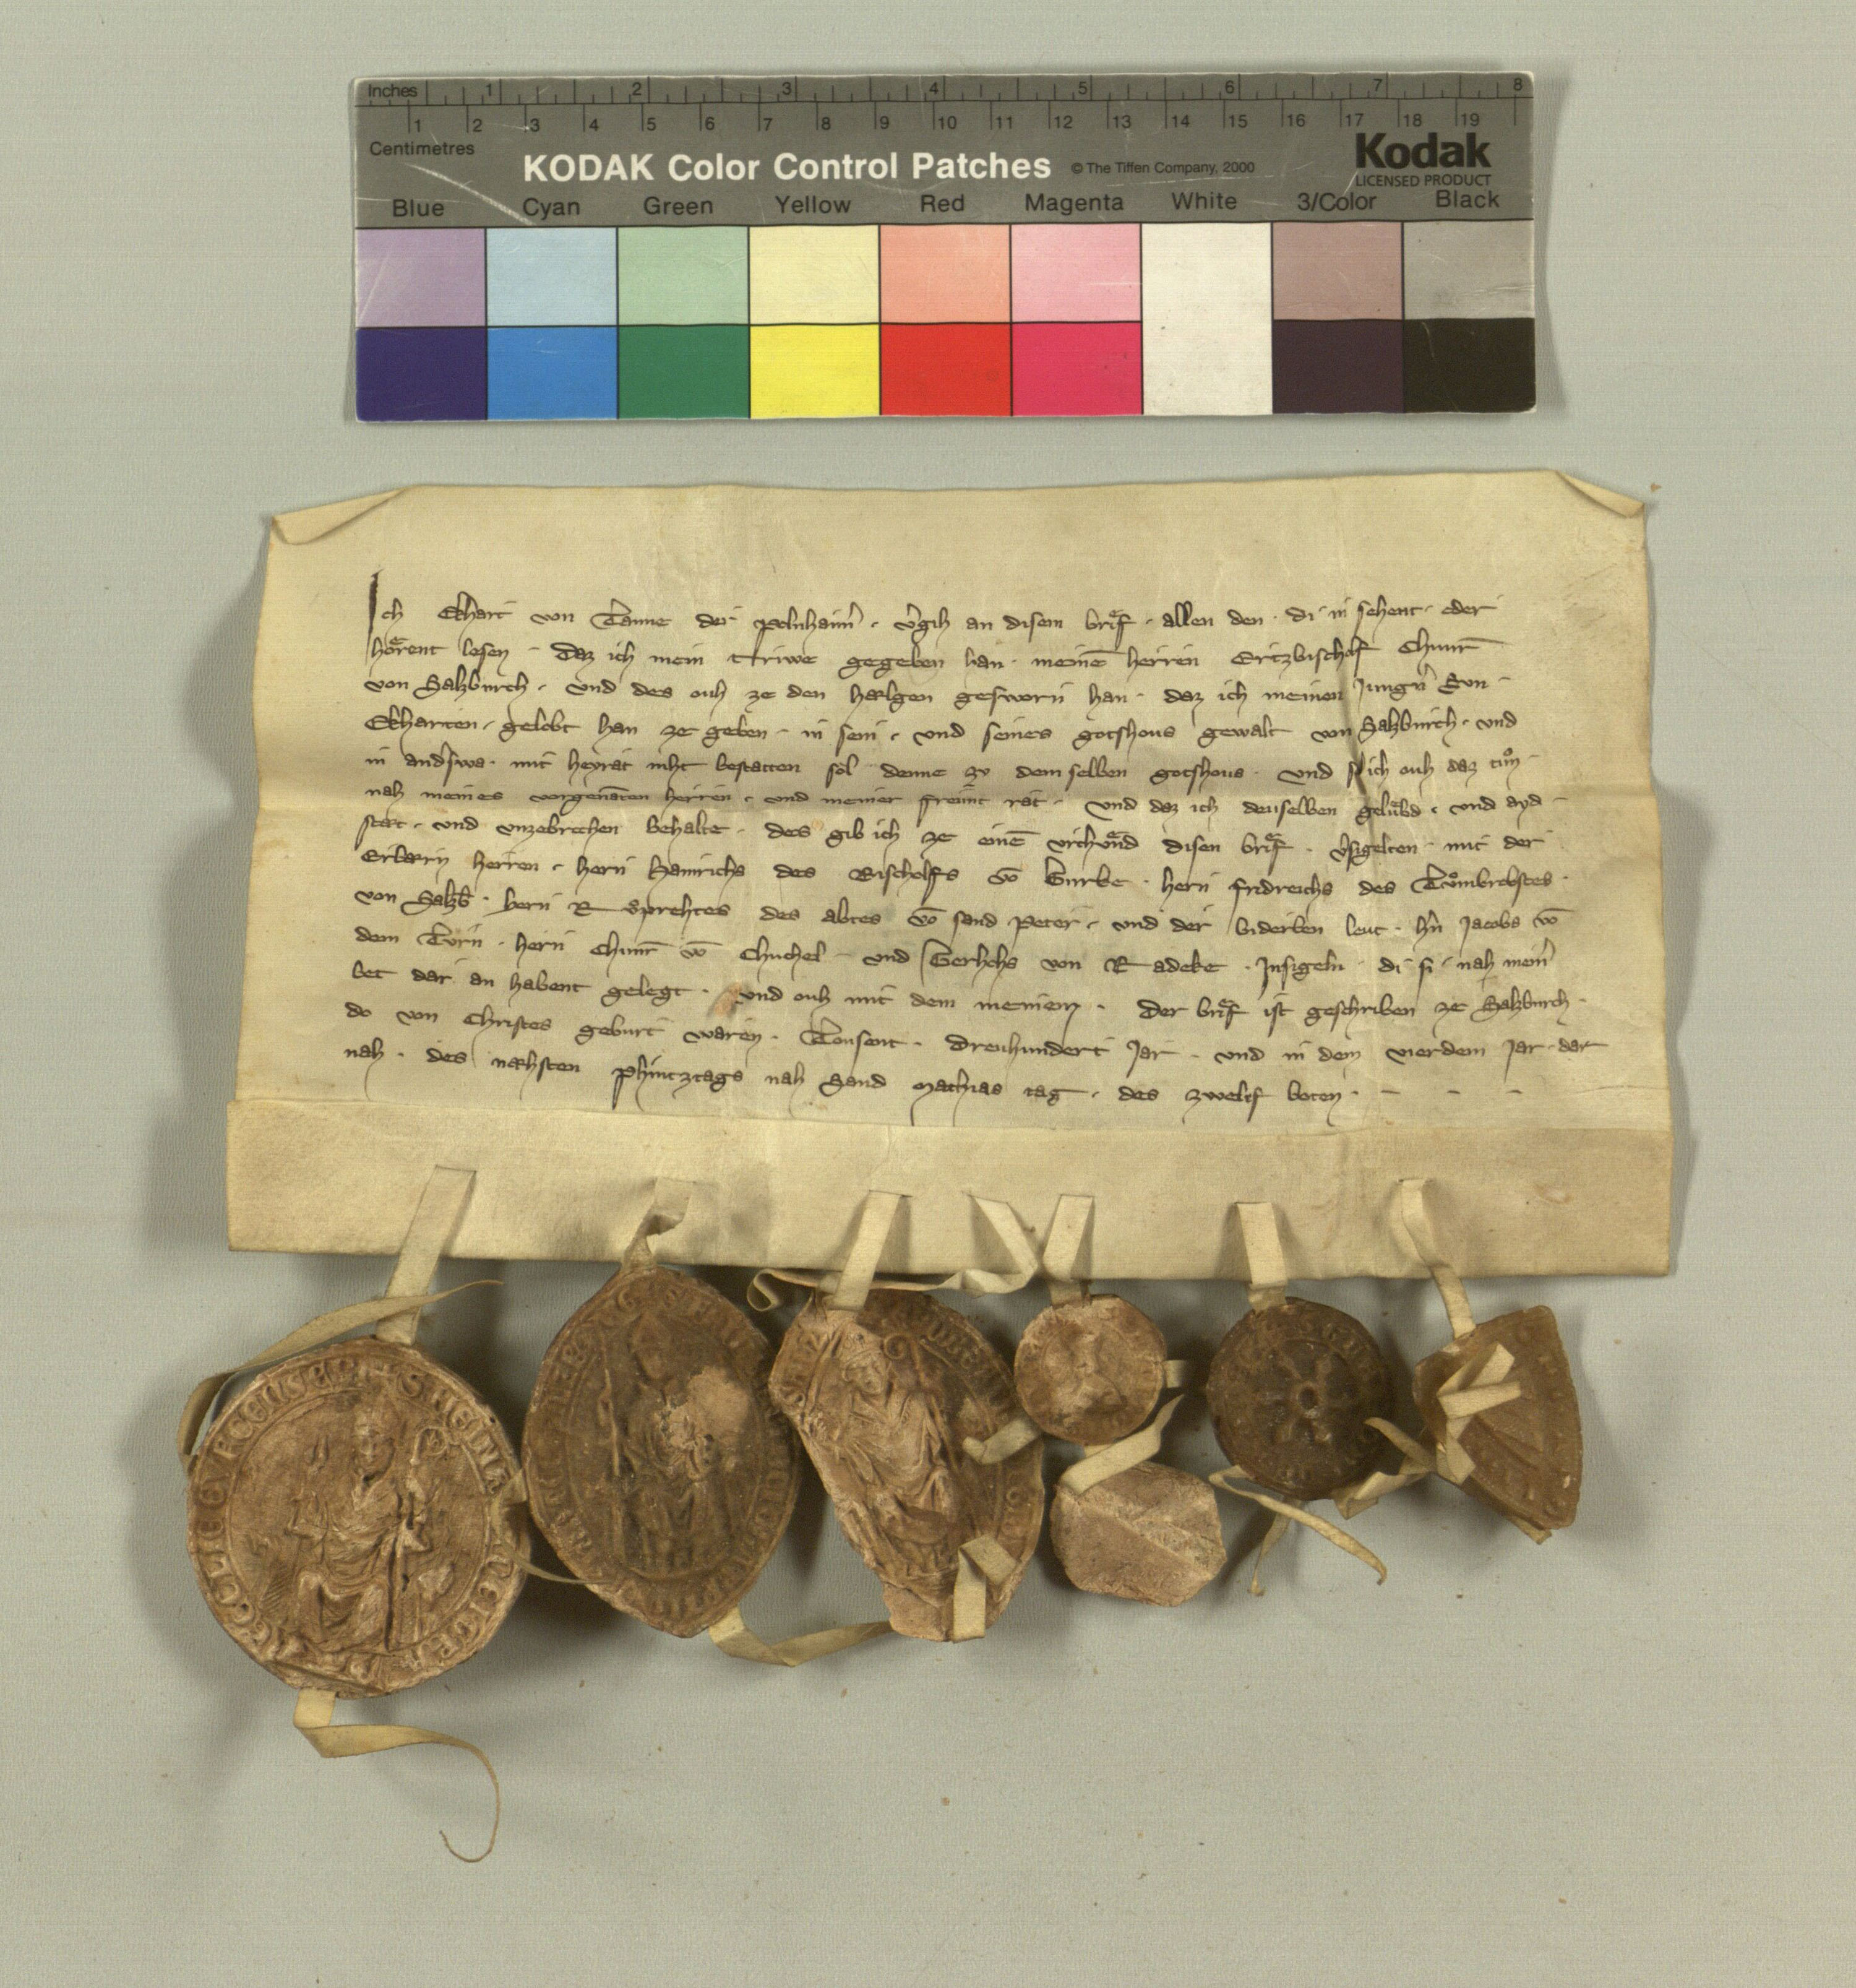 Inches 1 2 3 4 5 6 7 8
1 2 3 4 5 6 7 8 9 10 11 12 13 14 15 16 17 18 19
Centimetres
KODAK Color Control Patches © The Tiffen Company, 2000
Kodak
LICENSED PRODUCT
Blue Cyan Green Yellow Red Magenta White 3/Color Black
Ich Ekhart von Tanne der v̾gih an disem brief · allen den · di in sehent · oder
hoͤrent lesen · Daz ich mein triwe gegeben han · meinē herren Ertzbischof Chunr̄
von Salzburch · und des ouh ze den haelgen gesworn han · daz ich meinen Jungn̾ Sun
Ekharten · gelobt han ze geben · in sein · und seines gotshous gewalt von Salzburch · und
in anders̾wa · mit heyrat niht bestatten sol denne zv demselben gotshous · und sol ich ouh daz tuͦn
nah meines vorgenāten herren · und meiner freunt rat · Und daz ich denselben gelubd · und ayd
staet · und vnzebrochen behalte · des gib ich ze einē vrchund disen brief · v̾sigelten · mit der
Erbaern herren · hern Hainrichs des Bischolfs vō Gurke · hern fridreichs des Tuͦmbrobstes ·
von Salzb̄ · hern Ruͦprehtes des abtes vō sand Peter · und der biderben leut · hn̾ Jacobs vō
dem Turn · hern Chunr̄ vō Chuchel · und Gerhohs von Radeke · Insigeln · di si nah mein̾
bet dar an habent gelegt · und ouh mit dem meinem · Der brief ist geschriben ze Salzburch ·
do von Christes geburt waren · Tousent · Dreuhundert Jar · und in dem vierdem Jar · dar
nah · des naehsten phintztags nah Sand Mathias tag · des zwelf boten ·